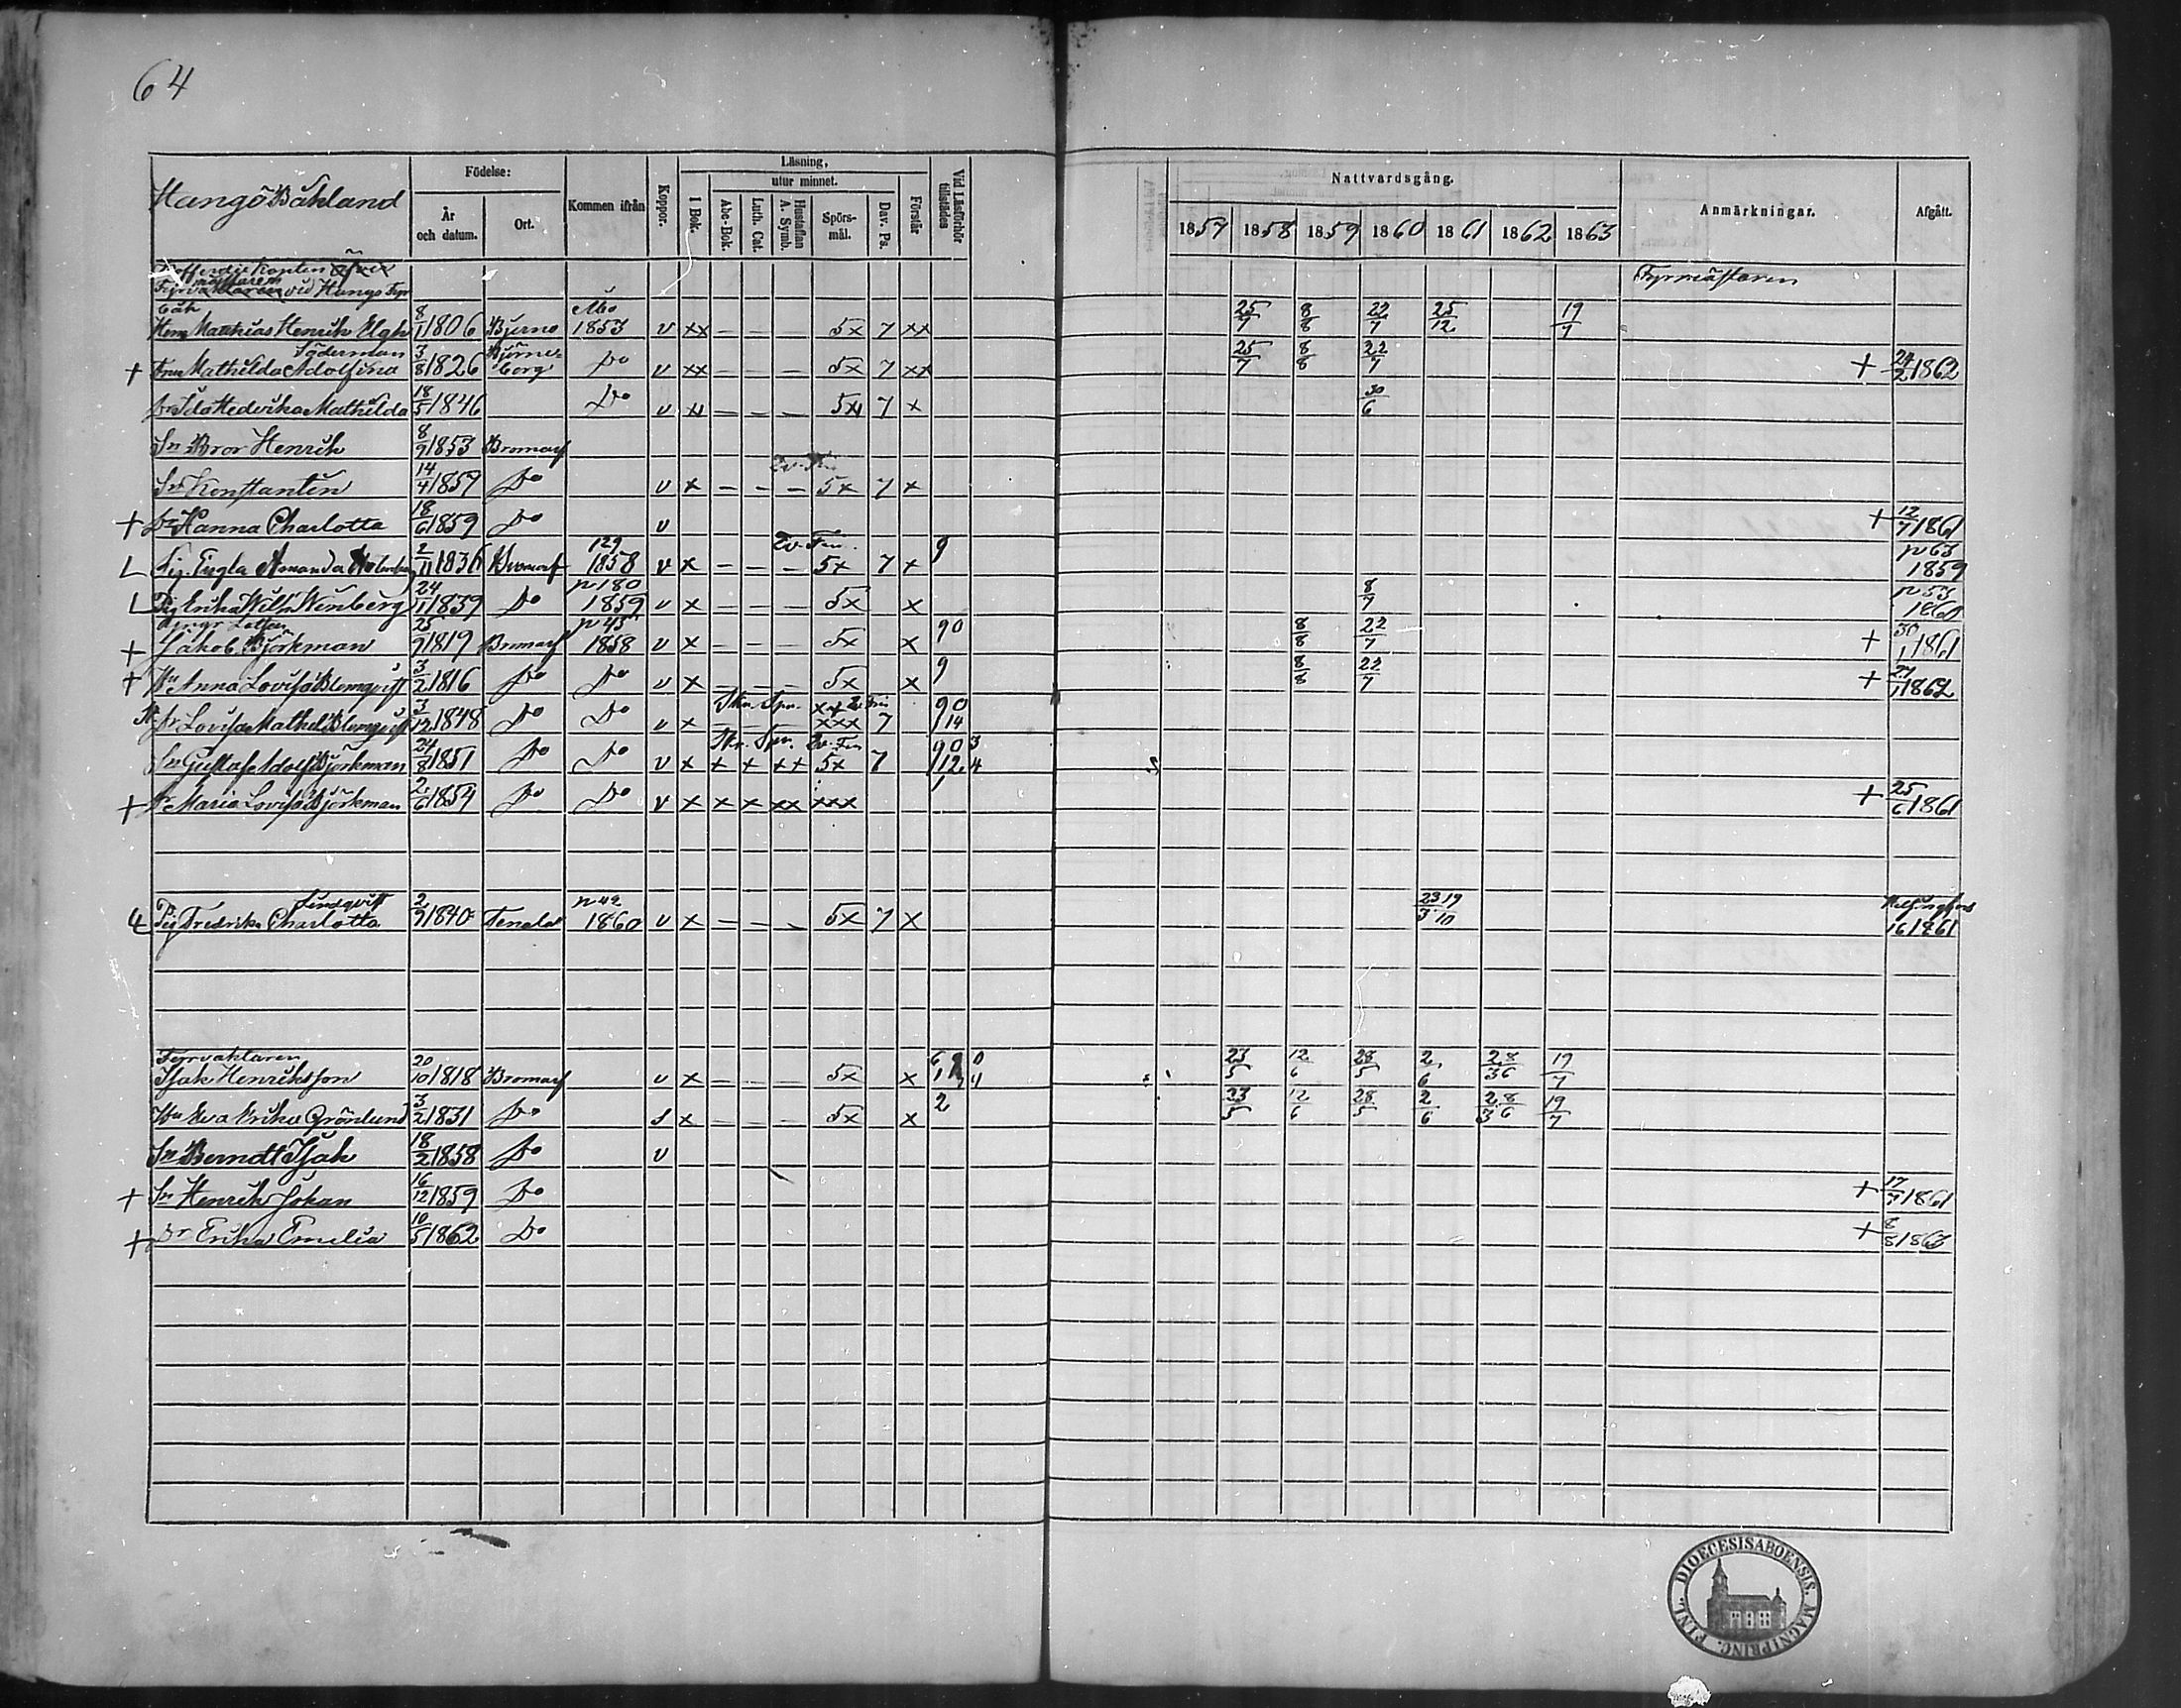 64
Hangö Båkland
Födelse:
År och datum.
Ort.
Kommen ifrån
Koppor.
Läsning,
I Bok.
utur minnet.
Abc-Bok.
Luth. Cat.
Hustaflan A. Symb.
Spörs-mål.
Dav. Ps.
Förstår
Vid Läsförhör tillstädes
Nattvardsgång.
1857 1858 1859 1860 1861 1862 1863
Anmärkningar.
Afgått.
Kofferdie Kapten
mästaren
Fyrvaktaren vid Hangö Fyr Fyrmästaren
båk Åbo
Matthias Henrik Elgh 8/1 1806 Bjerno 1853 v xx — — — 5x 7 xx 25/7 8/8 22/7 25/12 19/7
Söderman
+ Fru Mathilda Adolfina 3/8 1826 Björneborg Do v xx — — — 5x 7 xx 25/7 8/8 22/7 + 24/2 1862
Dr Ida Hedvika Mathilda 18/5 1846 Do v — — — 7 x 30/6
Sn Bror Henrik 8/9 1853 Bromarf
Sn Konstantin 14/4 1857 Do v x — — — 5x 7 x
+ Dr Hanna Charlotta 18/6 1859 Do v + 12/7 1861
L Pig. Engla Amanda 2/11 1836 Bromarf 129 1858 v x — — — 5x 7 x 9 p 63 1859
L Pig Erika Wilh. Winberg 24/11 1839 Do p 180 1859 v x — — — 5x x 8/7 p 53 1860
+ Jakob Björkman 25/9 1819 Bromarf p 45 1858 v x — — — 5x x 90 8/8 22/7 + 30/1 1861
+ Hu Anna Lovisa Blomqvist 3/2 1816 Do Do v x — — — 5x x 9 8/8 22/7 + 27/1 1862
Dr Lovisa Mathild. Blomqvist 3/12 1848 Do Do v x — — — xxx 7 90 14
Sn Gustaf Adolf Björkman 24/8 1851 Do Do v x x x xx 5x 7 90 3 12 4
+ Dr Maria Lovisa Björkman 2/6 1854 Do Do v x x x xx xxx 1 + 25/6 1861
Lindqvist
Pig Fredrika Charlotta 2/9 1840 Tenala p 42 1860 v x — — — 5x 7 x 23/3 19/10 Helsingfors 16 1861
Fyrvaktaren
Isak Henriksson 20/10 1818 Bromarf v x — — — 5x x 23/5 12/6 28/5 2/6 2/3 8/6 19/7
Hu Eva Erika Grönlund 3/2 1831 Do s x — — — 5x x 2 23/5 12/6 28/5 2/6 2/3 8/6 19/7
Sn Berndt Isak 18/2 1858 Do v
+ Sn Henrik Johan 16/12 1859 Do + 17/7 1861
+ Dr Erika Emelia 10/5 1862 Do + 8/8 1863
FINL. DIOECESIS ABOENSIS. MAGNI PRINC.